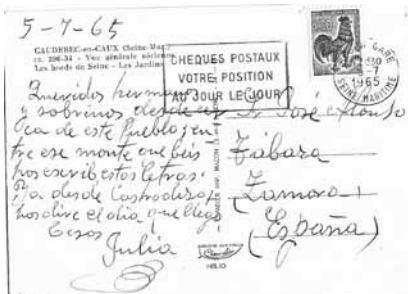 5-7-65
CAUDEBEC-en-CAUX (Seine-Mar.)
cc. 286-34 - Vue générale aérienne
Les bords de Seine - Les Jardins
CHEQUES POSTAUX
VOTRE POSITION
AU JOUR LE JOUR
GARE
1965
SEINE MARITIME
Queridos hermanos
y sobrinos desde cer
ca de este Pueblo, en
tre ese monte que beis
hos escribo estas letras.
Ya desde Castrodeza,
hos dire el dia que llego
Besos
Julia
Sr José Alonso
Tábara
Zamora
(España)
HELIO